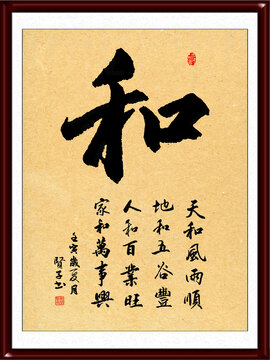 和
天和風雨順
地和五谷豐
人和百業旺
家和萬事興
壬寅歲夏月
賢子书